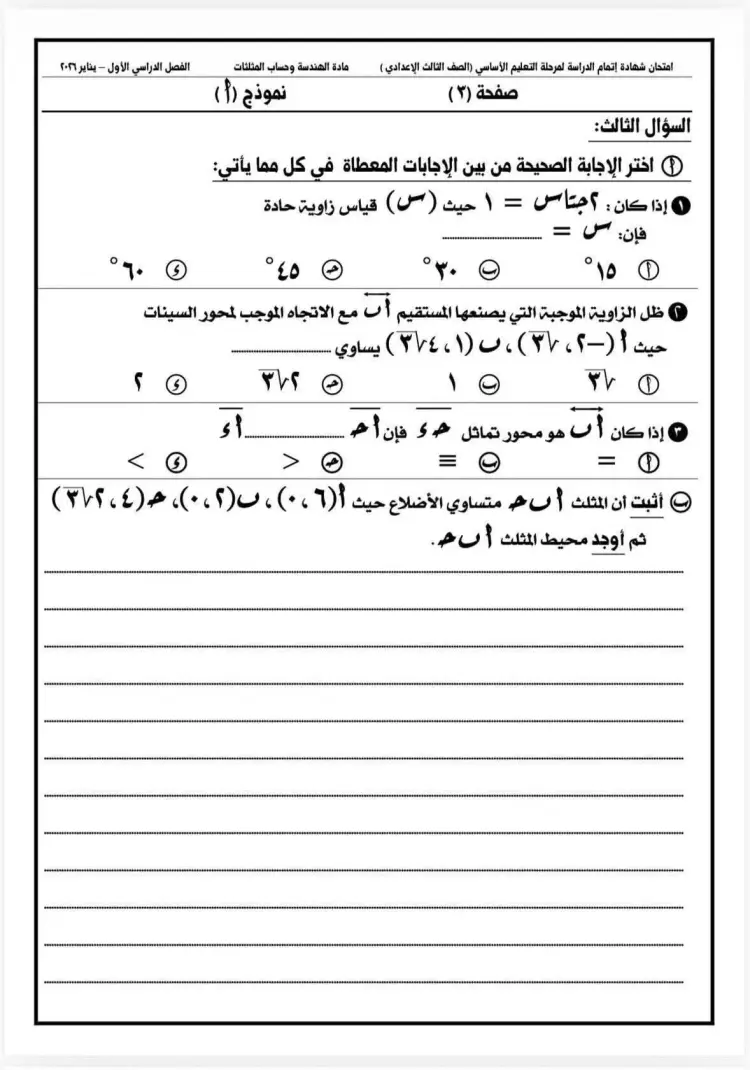 امتحان شهادة إتمام الدراسة لمرحلة التعليم الأساسي (الصف الثالث الإعدادي ) مادة الهندسة وحساب المثلثات الفصل الدراسي الأول – يناير ٢٠٢٦
صفحة (٣) نموذج (أ)
السؤال الثالث:
أ اختر الإجابة الصحيحة من بين الإجابات المعطاة في كل مما يأتي:
١ إذا كان : ٢جتاس = ١ حيث (س) قياس زاوية حادة
فإن: س = ............
أ ١٥° ب ٣٠° جـ ٤٥° د ٦٠°
٢ ظل الزاوية الموجبة التي يصنعها المستقيم أب مع الاتجاه الموجب لمحور السينات
حيث أ (−٢، √٣)، ب (١، ٤√٣) يساوي ............
أ √٣ ب ١ جـ ٢√٣ د ٢
٣ إذا كان أب هو محور تماثل جـ د فإن أجـ ............ أد
أ = ب ≡ جـ > د <
ب أثبت أن المثلث أ ب جـ متساوي الأضلاع حيث أ(٦، ٠)، ب(٢، ٠)، جـ(٤، ٢√٣)
ثم أوجد محيط المثلث أ ب جـ .